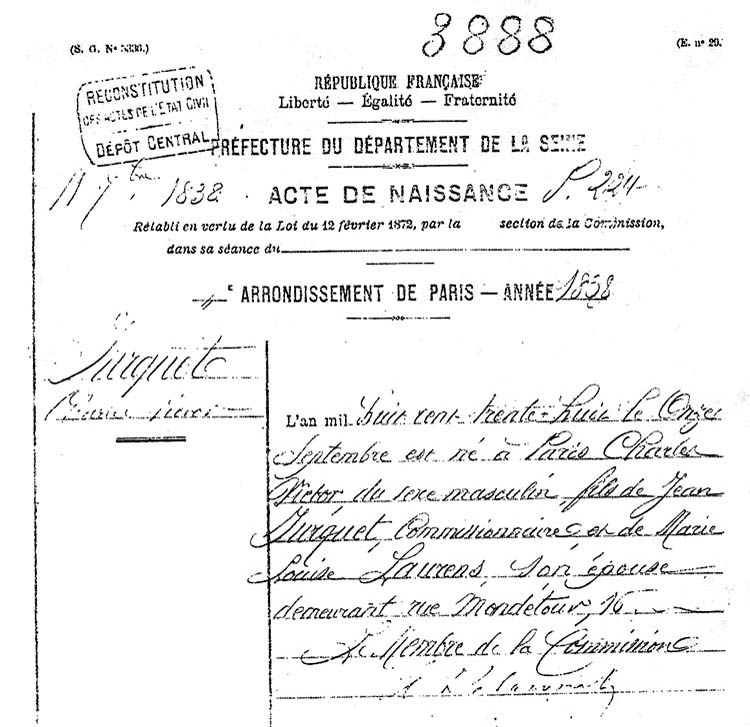 3888
(S. G. N° 5336.)
(E. n° 29.
RÉPUBLIQUE FRANÇAISE
Liberté — Égalité — Fraternité
RECONSTITUTION
DES ACTES DE L'ÉTAT CIVIL
DÉPÔT CENTRAL
PRÉFECTURE DU DÉPARTEMENT DE LA SEINE
11 7bre 1838 ACTE DE NAISSANCE P. 224
Rétabli en vertu de la Loi du 12 février 1872, par la section de la Commission,
dans sa séance du
4 e ARRONDISSEMENT DE PARIS — ANNÉE 1838
Furquet
Charles Victor
L'an mil huit cent trente-huit le Onze
Septembre est né à Paris Charles
Victor du sexe masculin, fils de Jean
Furquet, Commissionnaire et de Marie
Louise Laurens, son épouse
demeurant rue Mondétour, 16
Le Membre de la Commission